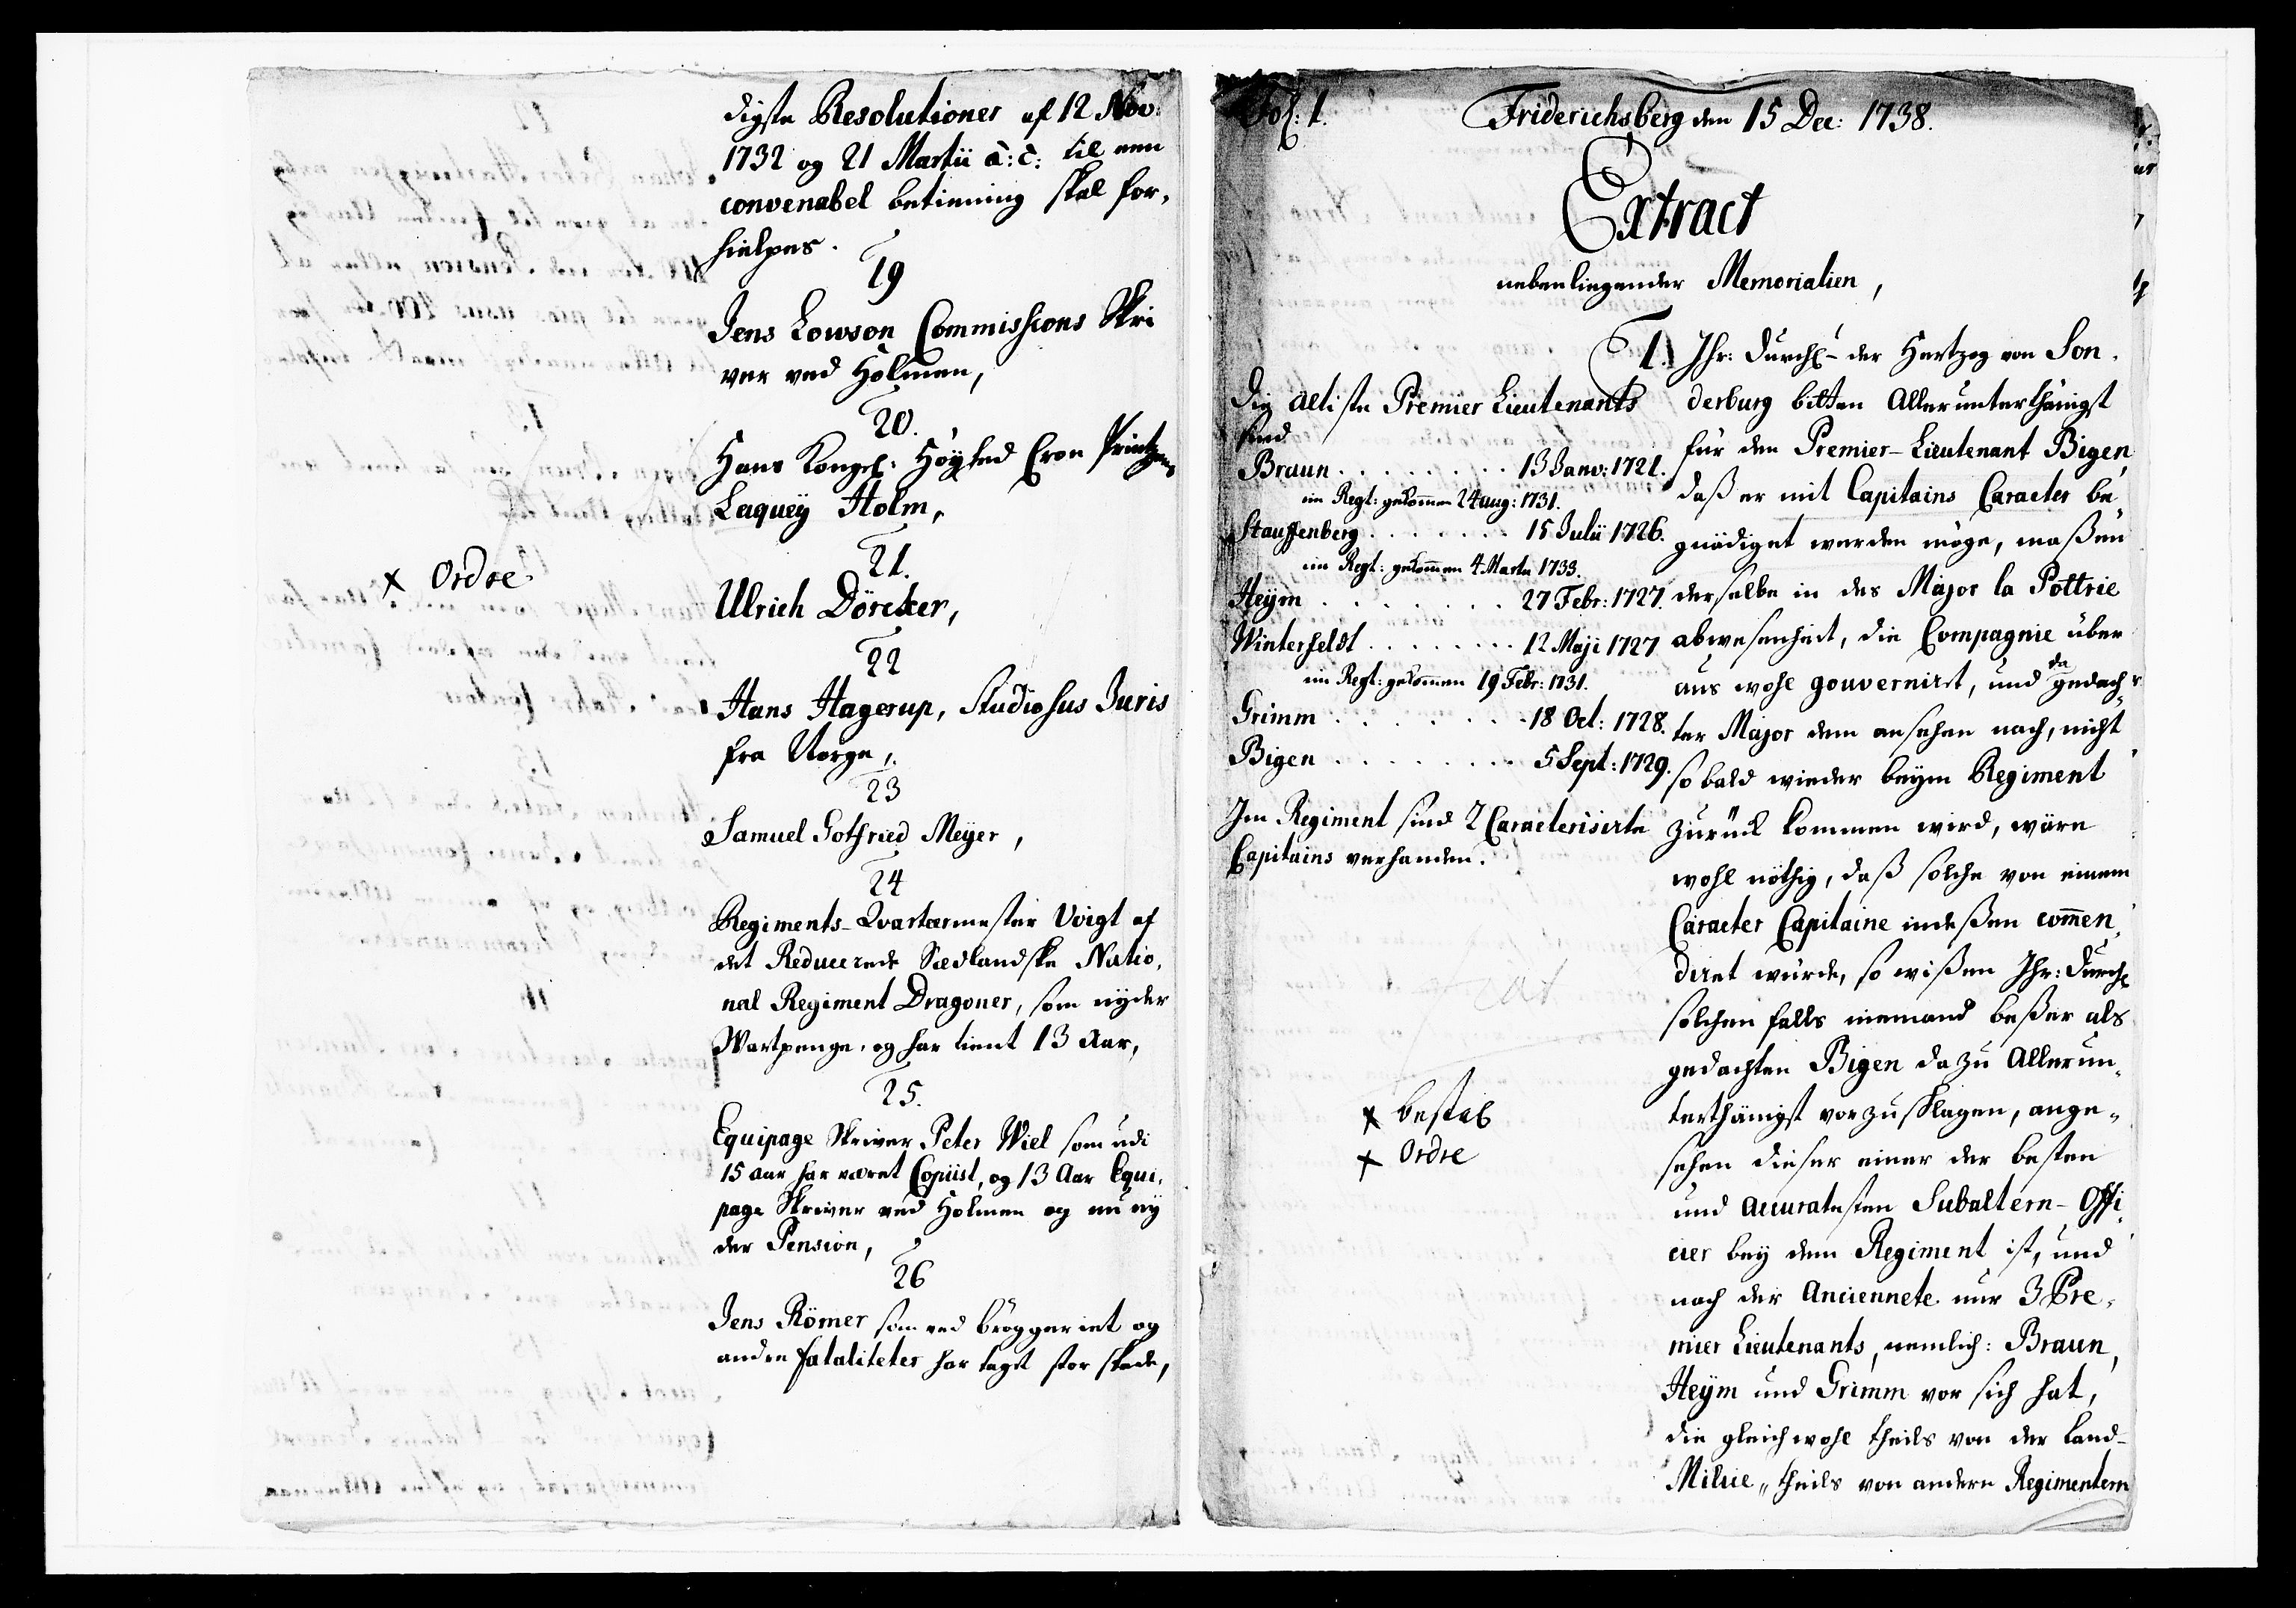 digste Resolutioner af 12 Nov:
1732 og 21 Martii a: c: til een
convenabel betiening skal for,
hielpes.
19
Jens Lowson Commissions Skri
ver ved Holmen,
20.
Hans Kongel: Høyhed Cron Printzens
Laqueÿ Holm,
21.
× Ordre
Ulrich Döreker,
22
Hans Hagerup, Studiosus Juris
fra Norge,
23
Samuel Gotfried Meÿer,
24
Regiments-Qvarteermester Voigt af
det Reducerede Siædlandske Natio,
nal Regiment Dragoner, som nÿder
Wartpenge, og har tient 13 Aar,
25.
Equipage Skriver Peter Wiel som udi
15 aar har været Copiist, og 13 Aar Equi,
page Skriver ved Holmen og nu nÿ
der Pension,
26
Jens Römer som ved brÿggeriet og
andre fataliteter har taget stor skade,
Fol: 1.
Friderichsberg den 15 Dec: 1738.
Extract
nebenliegender Memorialien,
1.) Ihr: Durchl: der Hertzog von Son,
derburg bitten Allerunterthänigst
für den Premier-Lieutenant Bigen,
daß er mit Capitains Caracter be
gnädiget werden möge, maßen
derselbe in des Major la Pottrie
abwesenheit, die Compagnie über
aus wohl gouverniret, und da gedach,
ter Major dem ansehen nach, nicht
so bald wieder beÿm Regiment
zurück kommen wird, wäre
wohl nöthig, daß solche von einem
Caracter Capitaine indeßen com̄en,
diret würde, so wißen Ihr: Durchl
solchen falls niemand beßer als
gedachten Bigen dazu Allerun,
terthänigst vorzuschlagen, ange,
sehen dieser einer der besten
und accuratesten Subaltern-Offi,
cier beÿ dem Regiment ist, und
nach der Anciennete nur 3 Pre,
mier Lieutenants, nemlich: Braun,
Heÿm und Grimm vor sich hat,
die gleichwohl theils von der Land-
Milice, theils von andern Regimentern
Die ælteste Premier Lieutenants
sind
Braun . . . . . . . . 13 Janv: 1721.
im Regt: gekom̄en 24 aug: 1731.
Stauffenberg . . . . . . . 15 Julii 1726.
im Regt: gekom̄en 4 Martii 1733.
Heÿm . . . . . . . 27 Febr: 1727.
Winterfeldt . . . . . . . . 12 Maji 1727
im Regt: gekom̄en 19 Febr: 1731.
Grimm . . . . . . . . 18 Oct: 1728.
Bigen . . . . . . . . 5 Sept: 1729.
Im Regiment sind 2 Caracterisirte
Capitains verhanden.
× bestal
× Ordre